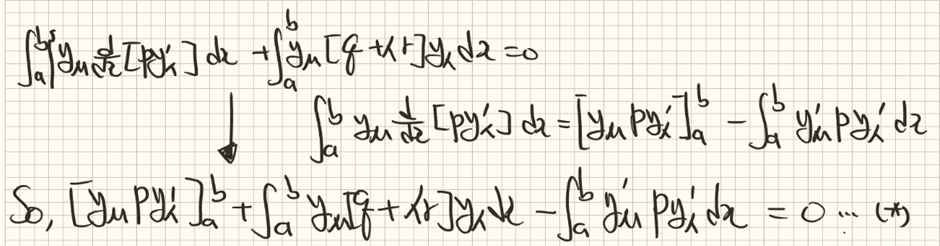 ∫_a^b y_μ d/dx [py'_λ] dx + ∫_a^b y_μ [q + λr] y_λ dx = 0
∫_a^b y_μ d/dx [py'_λ] dx = [y_μ py'_λ]_a^b - ∫_a^b y'_μ py'_λ dx
So, [y_μ py'_λ]_a^b + ∫_a^b y_μ [q + λr] y_λ dx - ∫_a^b y'_μ py'_λ dx = 0 ... (*)